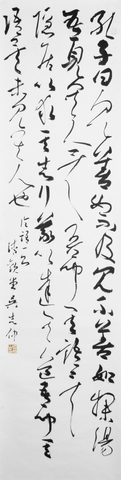 孔子曰見善如不及見不善如探湯
吾見其人矣吾聞其語矣
隱居以求其志行義以達其道吾聞其
語矣未見其人也